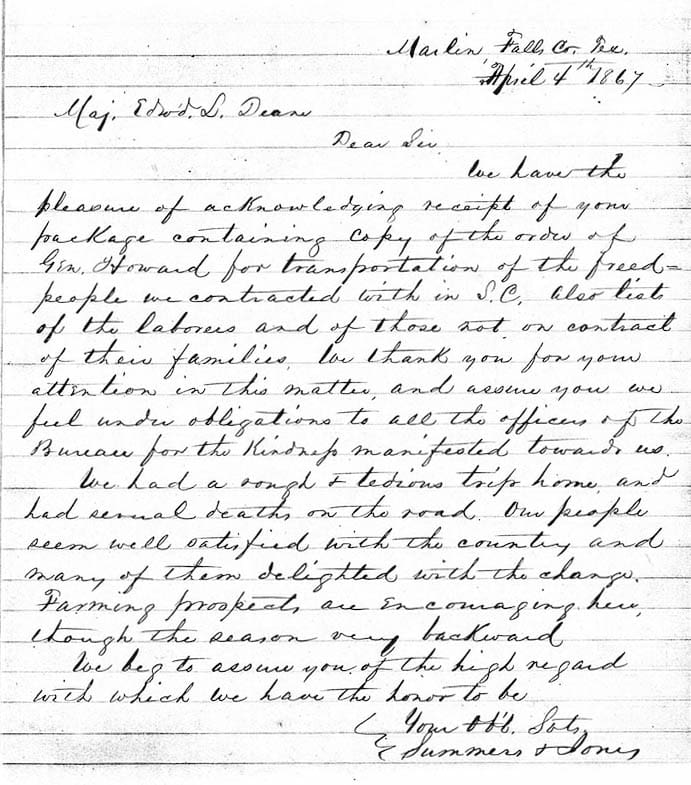 Marlin Falls Co. Tex.
April 4th 1867
Maj. Edwd. L. Deane
Dear Sir
We have the
pleasure of acknowledging receipt of your
package containing copy of the order of
Gen. Howard for transportation of the freed=
people we contracted with in S.C. Also lists
of the laborers and of those not on contract
of their families. We thank you for your
attention in this matter, and assure you we
feel under obligations to all the officers of the
Bureau for the kindness manifested towards us.
We had a rough & tedious trip home, and
had several deaths on the road. Our people
seem well satisfied with the country and
many of them delighted with the change.
Farming prospects are encouraging here,
though the season very backward
We beg to assure you of the high regard
with which we have the honor to be
Your Obt. Svts.
Summers & Jones